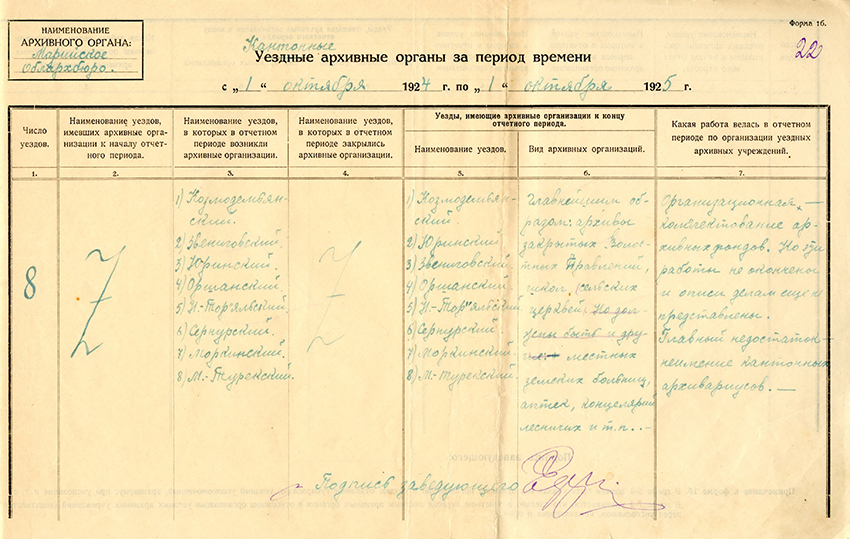 Форма 1б.
22
НАИМЕНОВАНИЕ
АРХИВНОГО ОРГАНА:
Марийское
Облархбюро.
Кантонные
Уездные архивные органы за период времени
с „1“ октября 1924 г. по „1“ октября 1925 г.
Число
уездов.
Наименование уездов,
имевших архивные орга-
низации к началу отчет-
ного периода.
Наименование уездов,
в которых в отчетном
периоде возникли
архивные организации.
Наименование уездов,
в которых в отчетном
периоде закрылись
архивные организации.
Уезды, имеющие архивные организации к концу
отчетного периода.
Наименование уездов.
Вид архивных организаций.
Какая работа велась в отчетном
периоде по организации уездных
архивных учреждений.
1.
2.
3.
4.
5.
6.
7.
8
1) Козмодемьян-
ский.
2) Звениговский.
3) Юринский.
4) Оршанский.
5) Н-Тор'яльский.
6) Сернурский.
7) Моркинский.
8) М.-Турекский.
1) Козмодемьян-
ский.
2) Юринский.
3) Звениговский.
4) Оршанский.
5) Н-Тор'яльский.
6) Сернурский.
7) Моркинский.
8) М.-Турекский.
Главнейшим об-
разом: архивы
закрытых Волос-
тных Правлений,
школ, сельских
церквей. Но дол-
жны быть и дру-
местных
земских больниц,
аптек, канцелярий
лесничих и т.п. -
Организационная -
комплектование ар-
хивных фондов. Но эти
работы не окончены
и описи делам еще не
представлены.
Главный недостаток -
неимение кантонных
архивариусов. -
Подпись заведующего